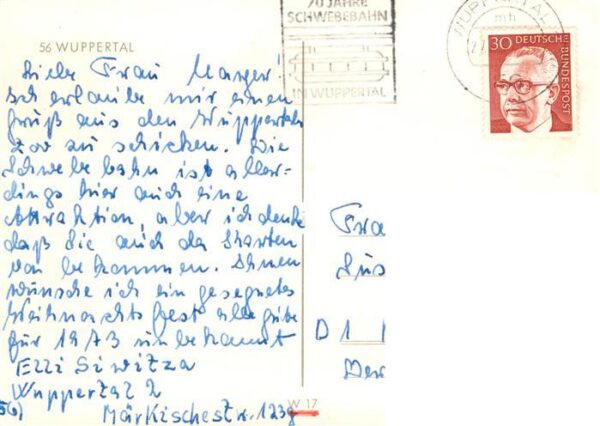 70 JAHRE
SCHWEBEBAHN
IN WUPPERTAL
WUPPERTAL
mh
30 DEUTSCHE BUNDESPOST
56 WUPPERTAL
Liebe Frau
ich erlaube mir einen
Gruß aus den Wuppertaler
Zoo zu schicken. Die
Schwebebahn ist aller-
dings hier auch eine
Attraktion, aber ich denke
daß Sie auch da Karten
von bekommen. Ihnen
wünsche ich ein gesegnetes
Weihnachtsfest alle gute
für 1973 unbekannt
Elli Siwitza
Wuppertal 2
Märkischestr. 123
Fra
Sus
D 1 1
Ber
W 17